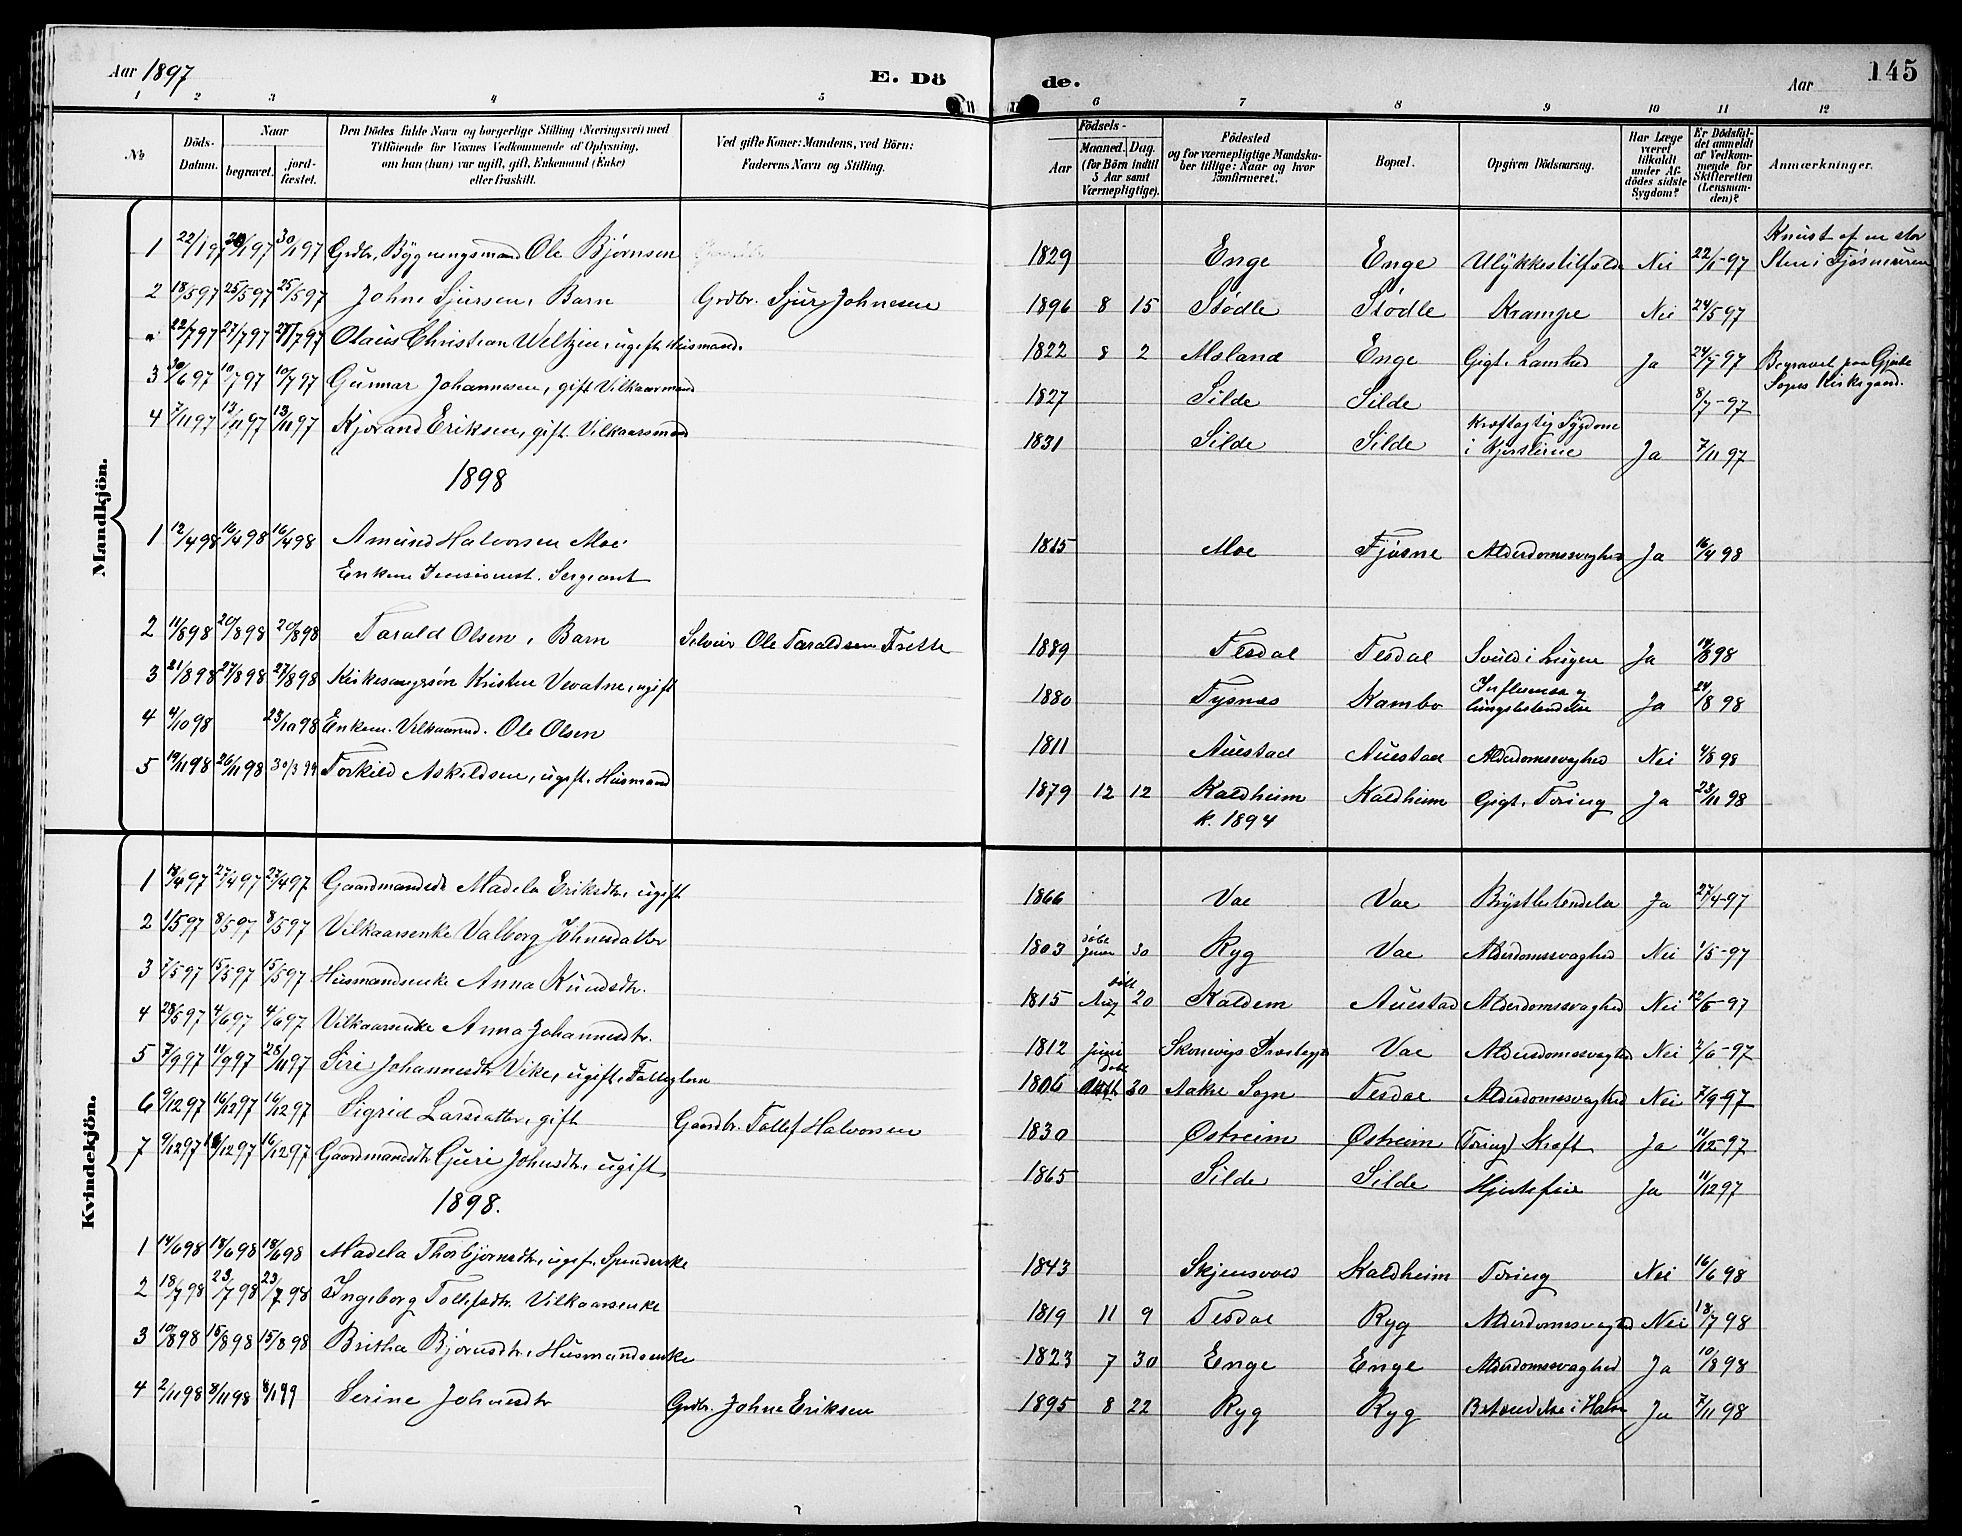 Aar 1897
E. Dö
de.
Aar
145
1 2 3 4 5 6 7 8 9 10 11 12
No
Döds-Datum.
Naar
begravet.
jordfæstet.
Den Dödes fulde Navn og borgerlige Stilling (Næringsvei) med
Tilföiende for Voxnes Vedkommende af Oplysning,
om han (hun) var ugift, gift, Enkemand (Enke)
eller fraskilt.
Ved gifte Koner: Mandens, ved Börn:
Faderens Navn og Stilling.
Födsels-
Aar
Maaned. Dag.
(for Börn indtil
5 Aar samt
Værnepligtige).
Födested
og for værnepligtige Mandska-
ber tillige: Naar og hvor
konfirmeret.
Bopæl.
Opgiven Dödsaarsag.
Har Læge
været
tilkaldt
under Af-
dödes sidste
Sygdom?
Er Dödsfal-
det anmeldt
af Vedkom-
mende for
Skifteretten
(Lensman-
den)?
Anmærkninger.
Mandkjön.
1 22/1 97 30/1 97 Grdbr. Bygningsmand Ole Bjørnsen 1829 Enge Enge Ulykkestilfælde Nei 22/1-97 Knust af en stor
Sten i Fjøsmuren
2 18/5 97 25/5 97 25/5 97 Johne Sjursen, Barn Grdbr. Sjur Johnesen 1896 8 15 Stødle Stødle Krampe Nei 24/5 97
" 22/7 97 27/7 97 27/7 97 Olaus Christian Weltzin, ugift Husmand. 1822 8 2 Alsland Enge Gigt. Lamhed Ja 24/7 97 Begravet paa
Sogns Kirkegaard.
3 30/6 97 10/7 97 10/7 97 Gunnar Johannesen, gift Vilkaarmand 1827 Silde Silde 8/7-97
4 7/11 97 13/11 97 13/11 97 Kjørand Eriksen, gift. Vilkaarsmand 1831 Silde Silde Kræftagtig Sygdom
i Kjertlerne Ja 7/11 97
1898
1 12/4 98 16/4 98 16/4 98 Amund Halvorsen Moe 1815 Moe Fjøsne Alderdomssvaghed Ja 16/4 98
Enkem. Pensionist. Sergeant
2 11/8 98 20/8 98 20/8 98 Tarald Olsen, Barn Selveier Ole Taraldsen Frette 1889 Tesdal Tesdal Svulst i Lugen Ja 14/8 98
3 21/8 98 27/8 98 27/8 98 Kirkesangersøn Kristen Vevatne, ugift 1880 Tysnes Kambo Influensa og
Lungebetendelse Ja 24/8 98
4 4/10 98 23/10 98 Enkem. Vilkaarmd. Ole Olsen 1811 Auestad Auestad Alderdomssvaghed Nei 4/8 98
5 19/11 98 26/11 98 30/3 99 Torkild Askildsen, ugift. Husmand 1879 12 12 Kaldheim Kaldheim Gigt. Tæring Ja 23/11 98
k. 1894
Kvindekjön.
1 18/4 97 27/4 97 27/4 97 Gaardmandsdtr Madela Eriksdtr, ugift 1866 Vae Vae Brystbetendelse Ja 27/4-97
2 1/5 97 8/5 97 8/5 97 Vilkaarsenke Valborg Johnesdatter 1803 døbt Juni 30 Ryg Vae Alderdomssvaghed Nei 1/5-97
3 7/5 97 15/5 97 15/5 97 Husmandsenke Anna Knudsdtr. 1815 døbt Aug 20 Kaldem Auestad Alderdomssvaghed Nei 12/5-97
4 28/5 97 4/6 97 4/6 97 Vilkaarsenke Anna Johannesdtr. 1812 Juni Skonevigs Præstegj. Vae Alderdomssvaghed Nei 2/6-97
5 7/9 97 11/9 97 28/11 97 Siri Johannesdtr Vike, ugift, Fattiglem 1806 døbt 30 Aakre Sogn Tesdal Alderdomssvaghed Nei 7/9-97
6 9/12 97 16/12 97 16/12 97 Sigrid Larsdatter, gift Gaardbr. Tollef Halvorsen 1830 Østreim Østreim (Tæring) Kræft Ja 11/12-97
7 9/12 97 16/12 97 16/12 97 Gaardmandsdtr Guri Johnsdtr, ugift 1865 Silde Silde Hjertefeil Ja 11/12 97
1898.
1 14/6 98 18/6 98 18/6 98 Madela Thorbjørnsdtr, ugift. Spinderske 1843 Skjensvold Kaldheim Tæring Nei 16/6 98
2 18/7 98 23/7 98 23/7 98 Ingeborg Tollefsdtr. Vilkaarsenke 1819 11 9 Tesdal Ryg Alderdomssvaghed Nei 18/7 98
3 10/8 98 15/8 98 15/8 98 Britha Bjørnsdtr, Husmandsenke 1823 7 30 Enge Enge Alderdomssvaghed Ja 10/8 98
4 2/11 98 8/11 98 8/1 99 Serine Johnesdtr Grdbr. Johne Eriksen 1895 8 22 Ryg Ryg Betændelse i Halsen Ja 7/11 98